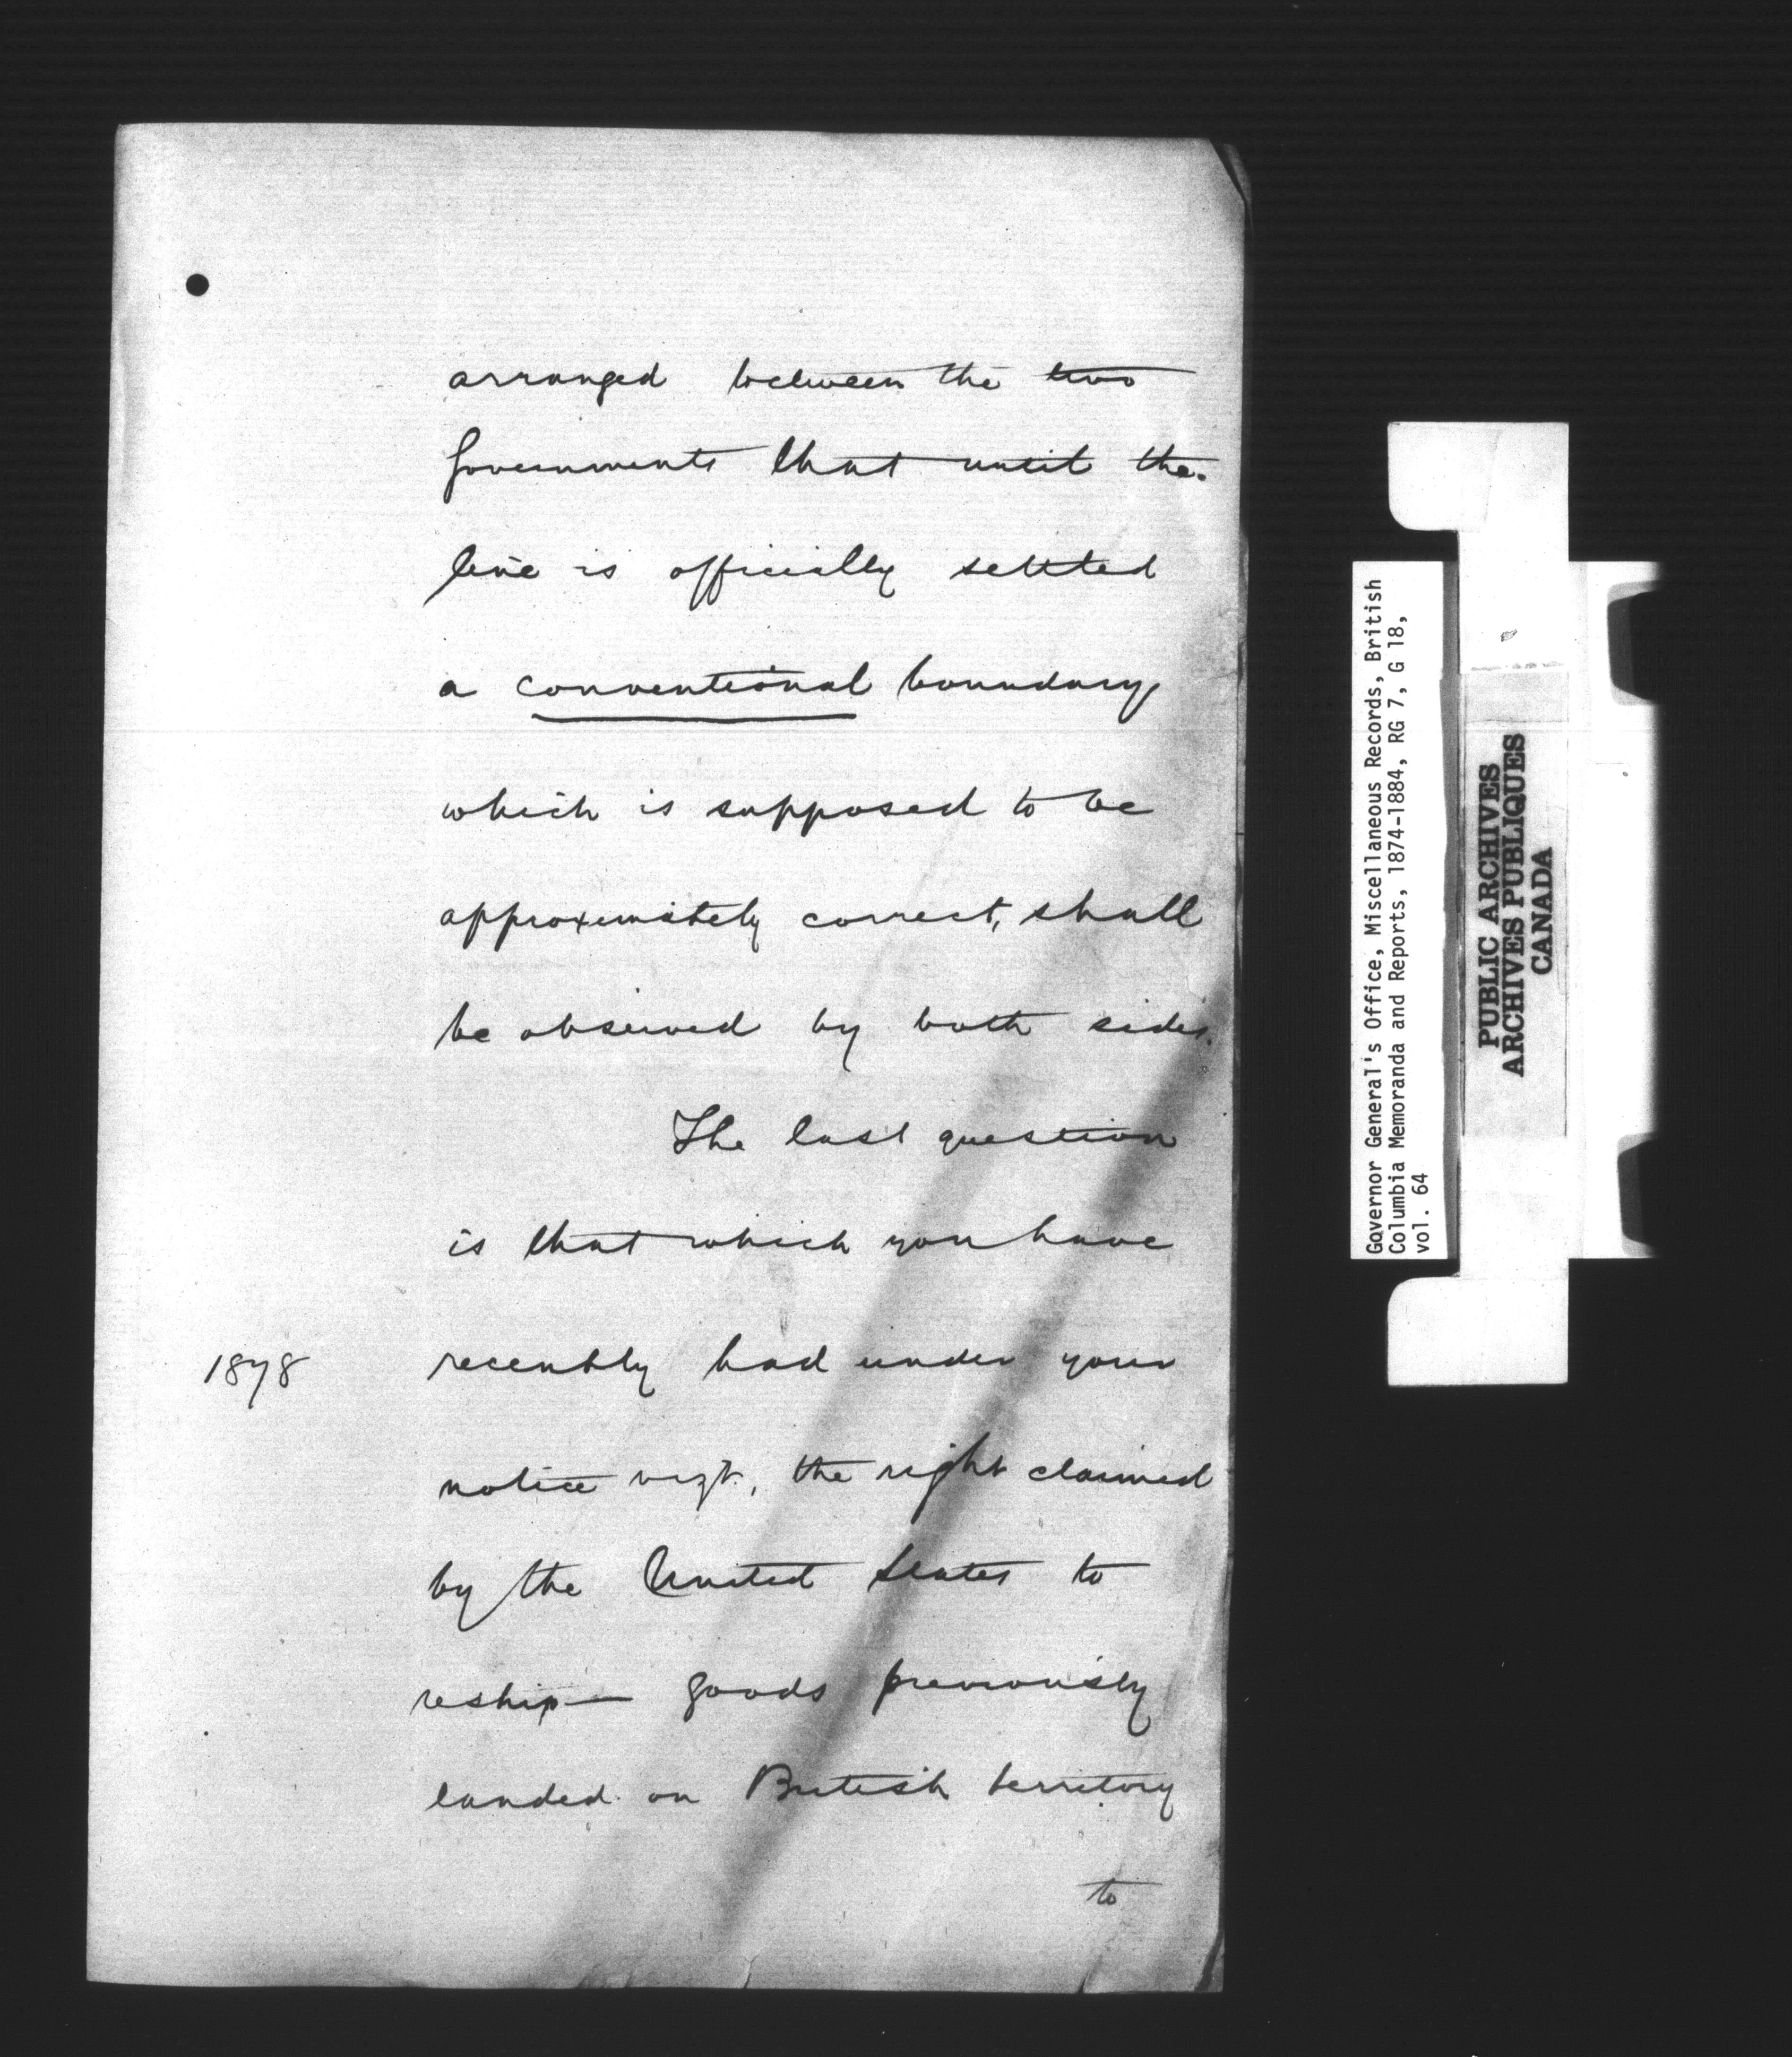 arranged between the two
Governments that until the
line is officially settled
a conventional boundary
which is supposed to be
approximately correct, shall
be observed by both sides.
The last question
is that which you have
1878 recently had under your
notice vizt., the right claimed
by the United States to
reship— goods previously
landed on British territory
to
Governor General's Office, Miscellaneous Records, British
Columbia Memoranda and Reports, 1874-1884, RG 7, G 18,
vol. 64
PUBLIC ARCHIVES
ARCHIVES PUBLIQUES
CANADA